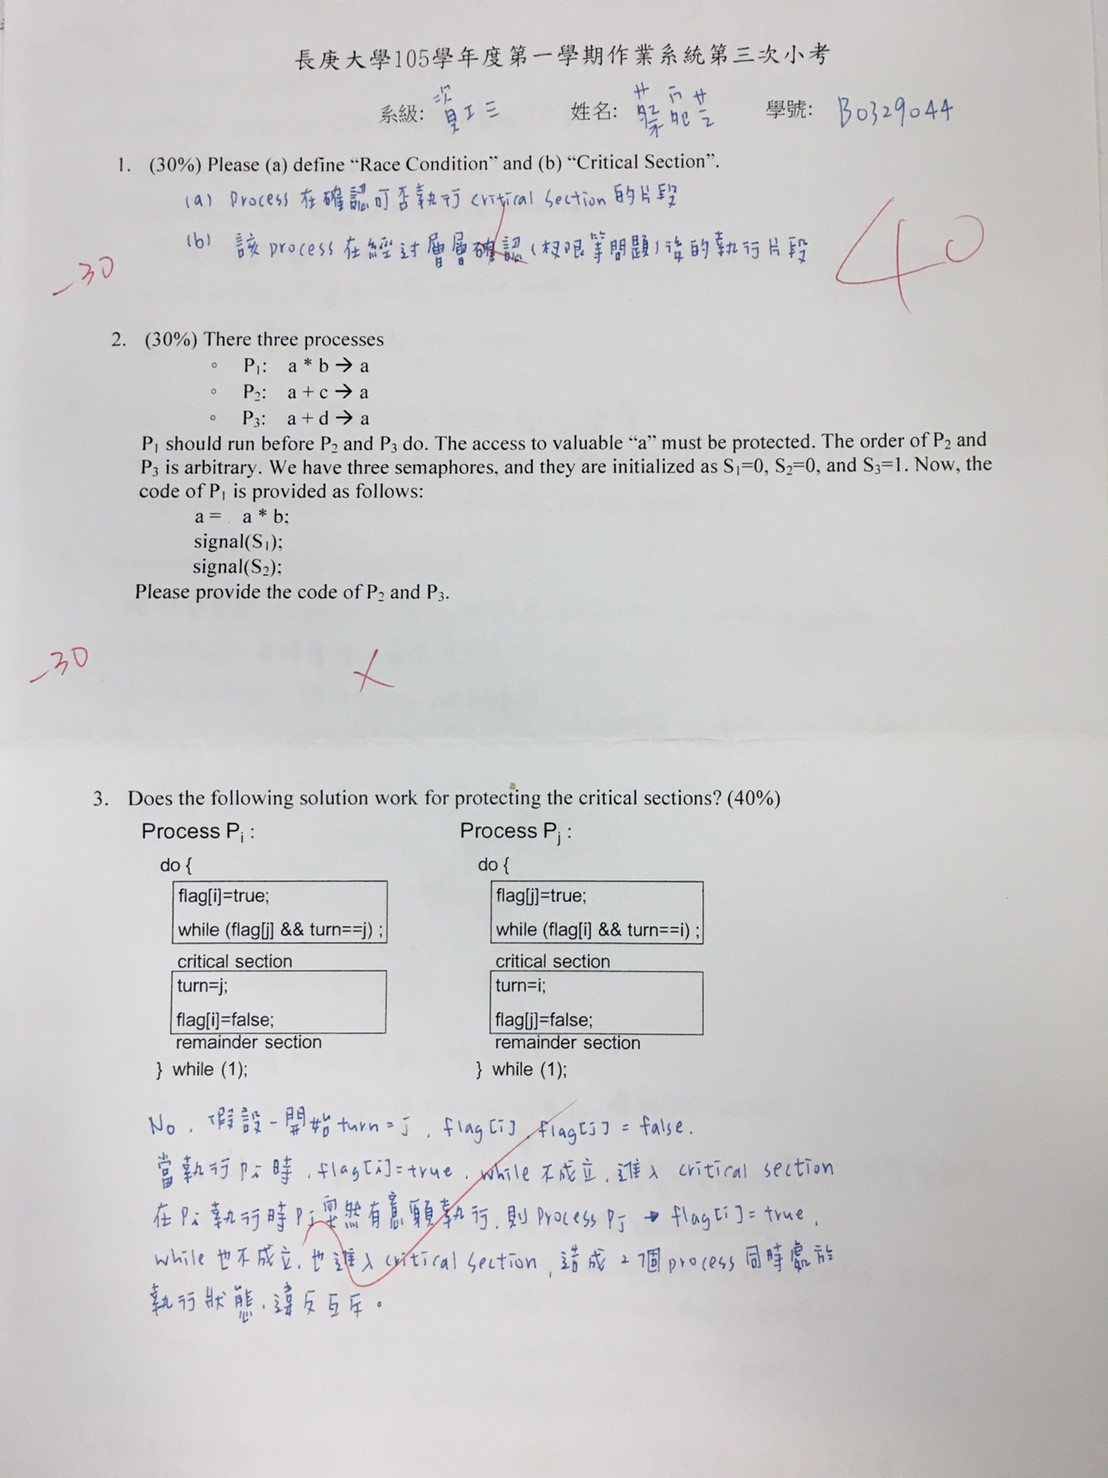 長庚大學105學年度第一學期作業系統第三次小考
系級: 資工三 姓名: 蔡 學號: B0329044
1. (30%) Please (a) define “Race Condition” and (b) “Critical Section”.
(a) Process 在確認可否執行 critical section 的片段
(b) 該 process 在經過層層確認(权限等問題)後的執行片段
-30
40
2. (30%) There three processes
◦ P₁: a * b → a
◦ P₂: a + c → a
◦ P₃: a + d → a
P₁ should run before P₂ and P₃ do. The access to valuable “a” must be protected. The order of P₂ and
P₃ is arbitrary. We have three semaphores, and they are initialized as S₁=0, S₂=0, and S₃=1. Now, the
code of P₁ is provided as follows:
a = a * b;
signal(S₁);
signal(S₂);
Please provide the code of P₂ and P₃.
-30
3. Does the following solution work for protecting the critical sections? (40%)
Process Pᵢ : Process Pⱼ :
do { do {
flag[i]=true; flag[j]=true;
while (flag[j] && turn==j) ; while (flag[i] && turn==i) ;
critical section critical section
turn=j; turn=i;
flag[i]=false; flag[j]=false;
remainder section remainder section
} while (1); } while (1);
No, 假設一開始 turn = j, flag[i], flag[j] = false.
當執行 Pi 時, flag[i]=true, while 不成立, 進入 critical section
在 Pi 執行時 Pj 突然有意願執行, 則 Process Pj → flag[j]=true,
while 也不成立, 也進入 critical section, 造成 2 個 process 同時處於
執行狀態, 違反互斥。